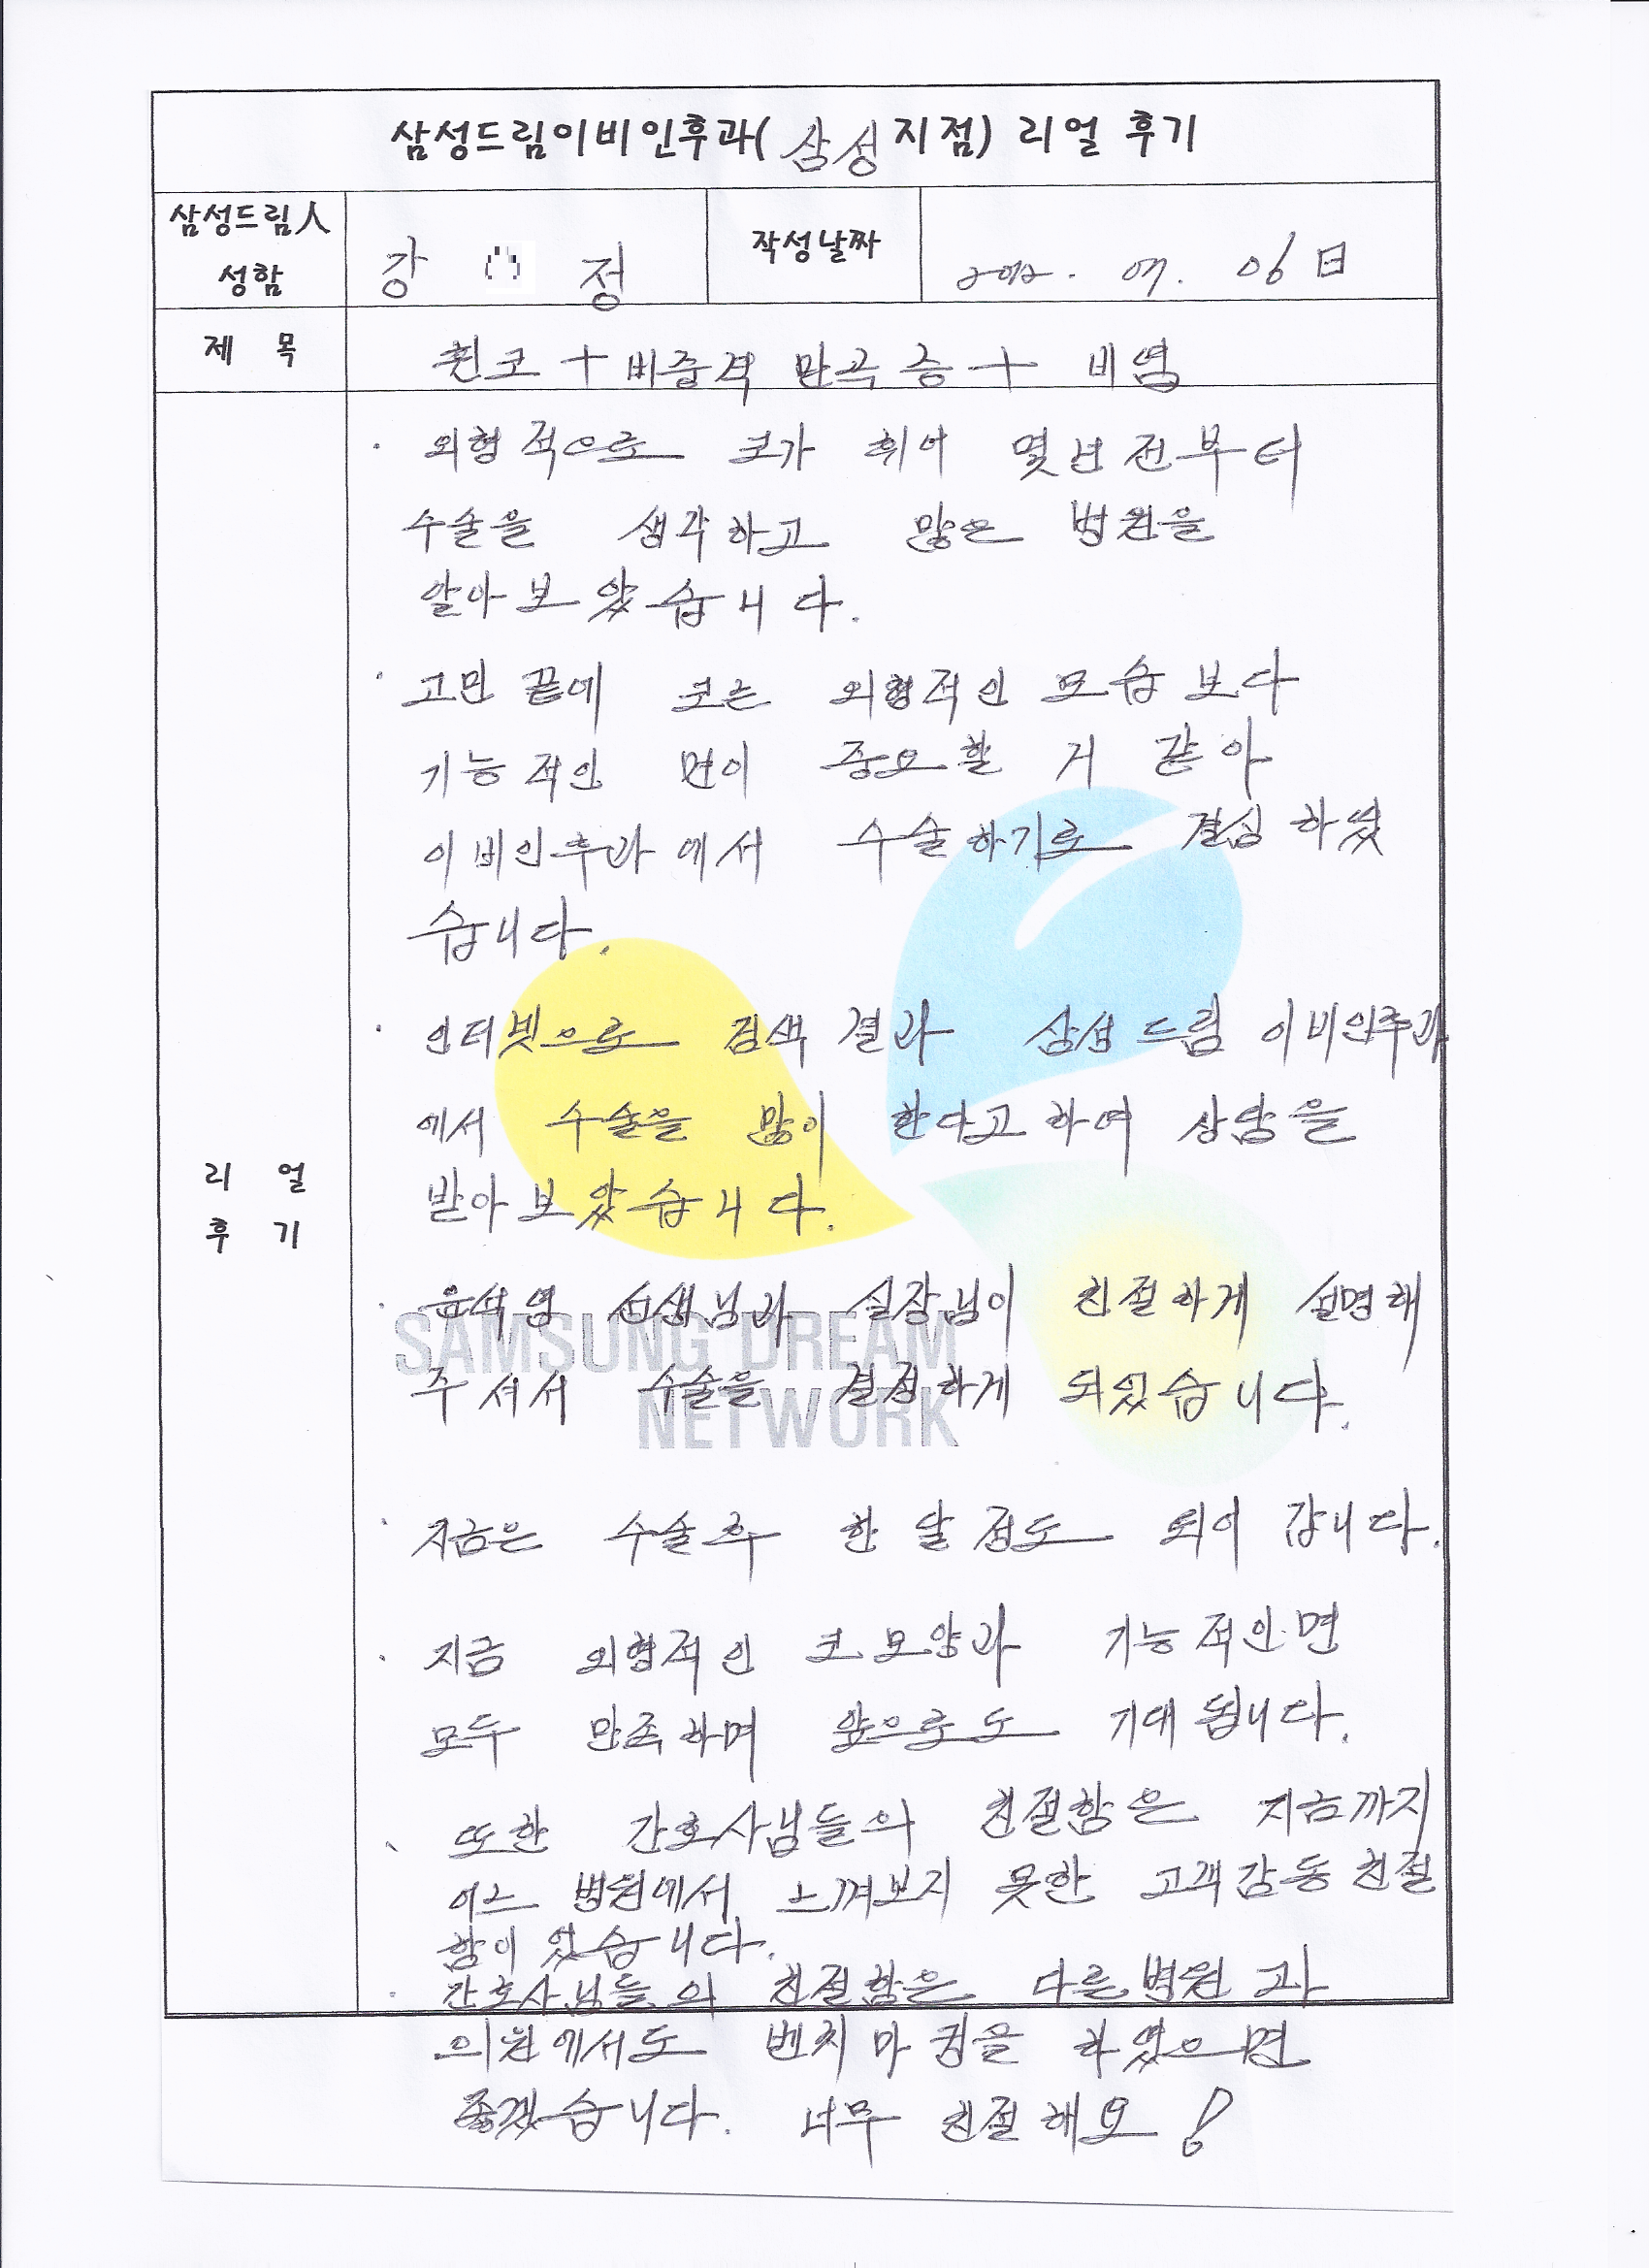 삼성드림이비인후과(삼성지점) 리얼 후기
삼성드림人
성함
강 정
작성날짜
2012. 07. 06日
제 목
휜코 + 비중격 만곡증 + 비염
· 외형적으로 코가 휘어 몇년전부터
수술을 생각하고 많은 병원을
알아보았습니다.
· 고민 끝에 코는 외형적인 모습보다
기능적인 면이 중요할 거 같아
이비인후과에서 수술하기로 결심하였
습니다.
· 인터넷으로 검색결과 삼성드림 이비인후과
에서 수술을 많이 한다고하여 상담을
받아보았습니다.
리 얼
후 기
· 윤석영 선생님과 실장님이 친절하게 설명해
주셔서 수술을 결정하게 되었습니다.
SAMSUNG DREAM
NETWORK
· 지금은 수술후 한달정도 되어 갑니다.
· 지금 외형적인 코모양과 기능적인면
모두 만족하며 앞으로도 기대됩니다.
· 또한 간호사님들의 친절함은 지금까지
어느 병원에서 느껴보지 못한 고객감동친절
함이 있습니다.
· 간호사님들의 친절함은 다른병원과
의원에서도 벤치마킹을 하였으면
좋겠습니다. 너무 친절해요!